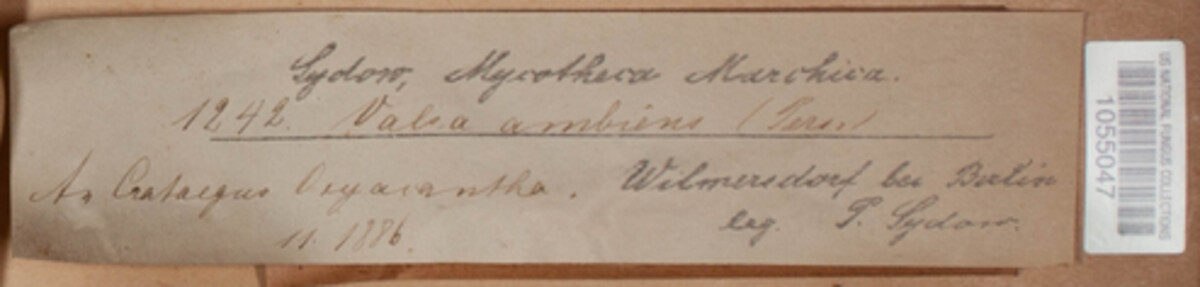 Sydow, Mycotheca Marchica.
1242. Valsa ambiens (Pers.)
An Crataegus Oxyacantha. Wilmersdorf bei Berlin
11. 1886. leg. P. Sydow.
US NATIONAL FUNGUS COLLECTIONS
1055047